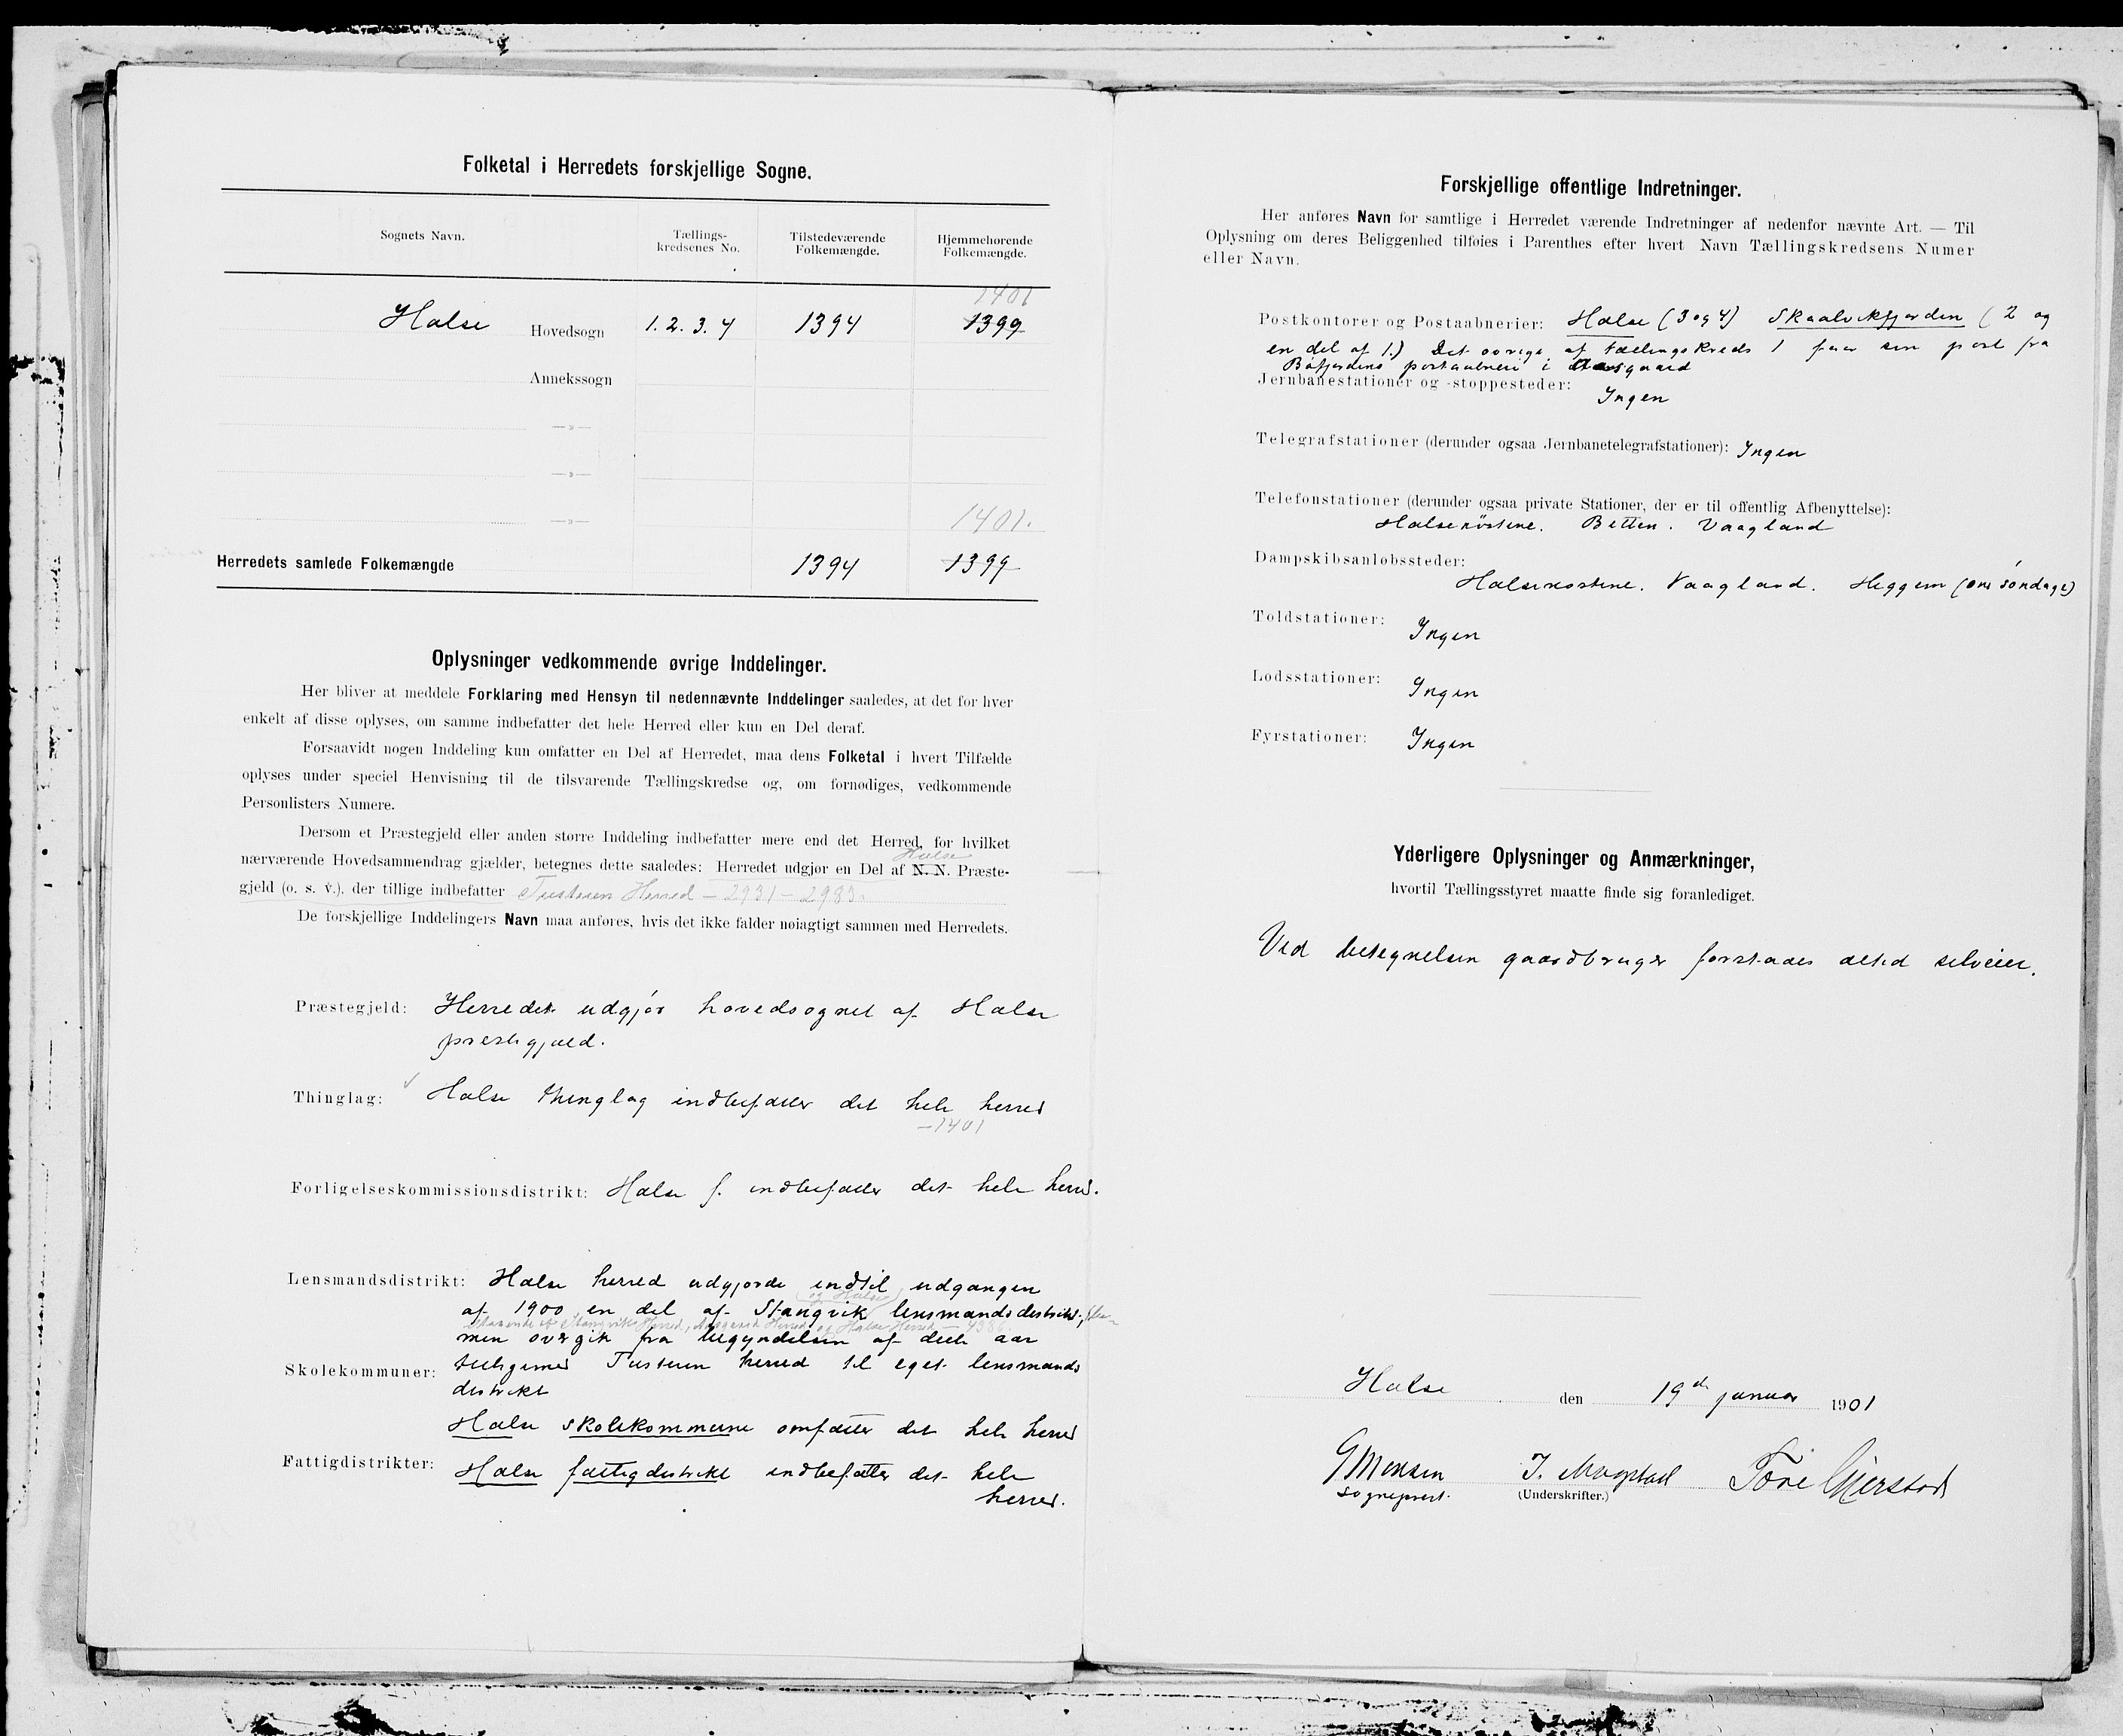 Folketal i Herredets forskjellige Sogne.
Sognets Navn.
Tællings-
kredsenes No.
Tilstedeværende
Folkemængde.
Hjemmehørende
Folkemængde.
1401
Halse Hovedsogn 1. 2. 3. 4 1394 1399
Annekssogn
—»—
—»—
—»—
1401.
Herredets samlede Folkemængde 1394 1399
Oplysninger vedkommende øvrige Inddelinger.
Her bliver at meddele Forklaring med Hensyn til nedennævnte Inddelinger saaledes, at det for hver
enkelt af disse oplyses, om samme indbefatter det hele Herred eller kun en Del deraf.
Forsaavidt nogen Inddeling kun omfatter en Del af Herredet, maa dens Folketal i hvert Tilfælde
oplyses under speciel Henvisning til de tilsvarende Tællingskredse og, om fornødiges, vedkommende
Personlisters Numere.
Dersom et Præstegjeld eller anden større Inddeling indbefatter mere end det Herred, for hvilket
Halse
nærværende Hovedsammendrag gjælder, betegnes dette saaledes: Herredet udgjør en Del af N. N. Præste-
gjeld (o. s. v.), der tillige indbefatter Tusteren Herred — 2931 — 2983.
De forskjellige Inddelingers Navn maa anføres, hvis det ikke falder nøiagtigt sammen med Herredets.
Præstegjeld: Herredet udgjør hovedsognet af Halse
prestegjæld.
Thinglag: Halse thinglag indbefatter det hele herred
—1401
Forligelseskommissionsdistrikt: Halse f. indbefatter det hele herred.
Lensmandsdistrikt: Halse herred udgjorde indtil udgangen
og Halse
af 1900 en del af Stangvik lensmandsdistrikt,
Stangvik Herred, Aasgaard Herred og Halse Herred — 4386
men overgik fra begyndelsen af dette aar
Skolekommuner: tilligemed Tusteren herred til eget lensmands
distrikt
Halse skolekommune omfatter det hele herred
Fattigdistrikter: Halse fattigdistrikt indbefatter det hele
herred.
Forskjellige offentlige Indretninger.
Her anføres Navn for samtlige i Herredet værende Indretninger af nedenfor nævnte Art. — Til
Oplysning om deres Beliggenhed tilføies i Parenthes efter hvert Navn Tællingskredsens Numer
eller Navn.
Postkontorer og Postaabnerier: Halse (3 og 4) Skaalvikfjorden (2 og
en del af 1.) Det øvrige af tællingskreds 1 faar sin post fra
Bøfjordens postaabneri i Aasgaard
Jernbanestationer og -stoppesteder:
Ingen
Telegrafstationer (derunder ogsaa Jernbanetelegrafstationer): Ingen
Telefonstationer (derunder ogsaa private Stationer, der er til offentlig Afbenyttelse):
Halsenøstene. Betten. Vaagland
Dampskibsanløbssteder:
Halsenøstene. Vaagland. Heggem (om søndage)
Toldstationer: Ingen
Lodsstationer: Ingen
Fyrstationer: Ingen
Yderligere Oplysninger og Anmærkninger,
hvortil Tællingsstyret maatte finde sig foranlediget.
Ved betegnelsen gaardbruger forstaaes altid selveier.
Halse den 19de januar 1901
J. Magstad Tore Gjerstad
sogneprest. (Underskrifter.)